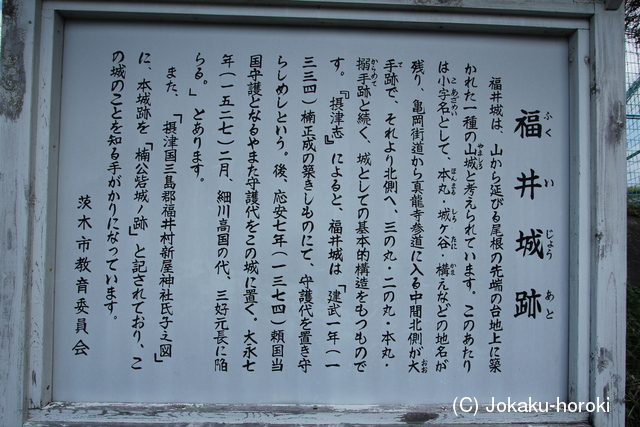 福井城跡
ふく い じょう あと
福井城は、山から延びる尾根の先端の台地上に築
かれた一種の山城と考えられています。このあたり
やましろ
は小字名として、本丸・城ケ谷・構えなどの地名が
こあざめい ほんまる しろ たに かま
残り、亀岡街道から真龍寺参道に入る中間北側が大
おお
手跡で、それより北側へ、三の丸・二の丸・本丸・
て
搦手跡と続く、城としての基本的構造をもつもので
からめて
す。『摂津志』によると、福井城は「建武一年(一
三三四)楠正成の築きしものにて、守護代を置き守
らしめしという。後、応安七年(一三七四)頼国当
国守護となるやまた守護代をこの城に置く。大永七
年(一五二七)二月、細川高国の代、三好元長に陥
らる。」とあります。
また、「摂津国三島郡福井村新屋神社氏子之図」
に、本城跡を「楠公岩城ノ跡」と記されており、こ
の城のことを知る手がかりになっています。
茨木市教育委員会
(C) Jokaku-horoki